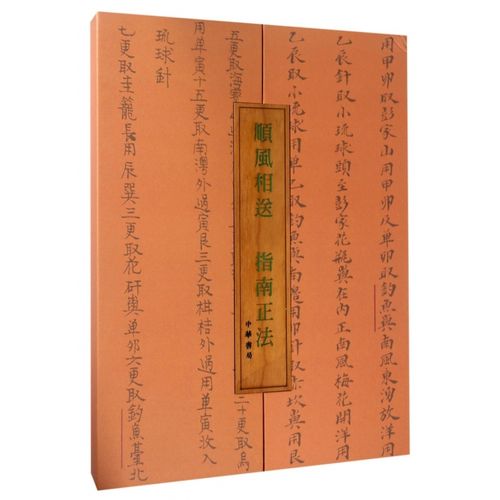 用甲卯取彭家山用甲卯及单卯取釣魚與南風東涌放洋用
乙辰針取小琉球頭至彭家花瓶與在内正南風梅花開洋用
乙辰取小琉球用单乙取釣魚與南邉用卯針取赤坎與用艮
二十更取烏
順風相送 指南正法
中華書局
五更取海
用单寅十五更取南澳外過寅艮三更取柑桔外過用单寅收入
琉球針
七更取圭籠長用辰巽三更取花矸與单卯六更取釣魚臺北